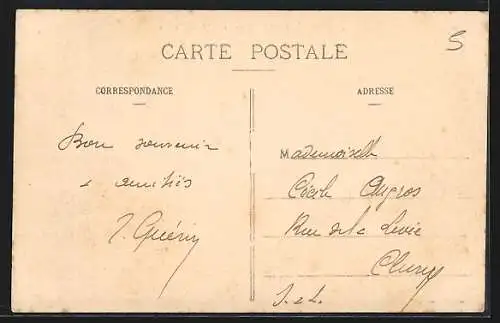 CARTE POSTALE
5
CORRESPONDANCE
ADRESSE
Bon souvenir
& amitiés
J. Guérin
Mademoiselle
Cécile
Rue de la Levée
Cluny
S. et L.